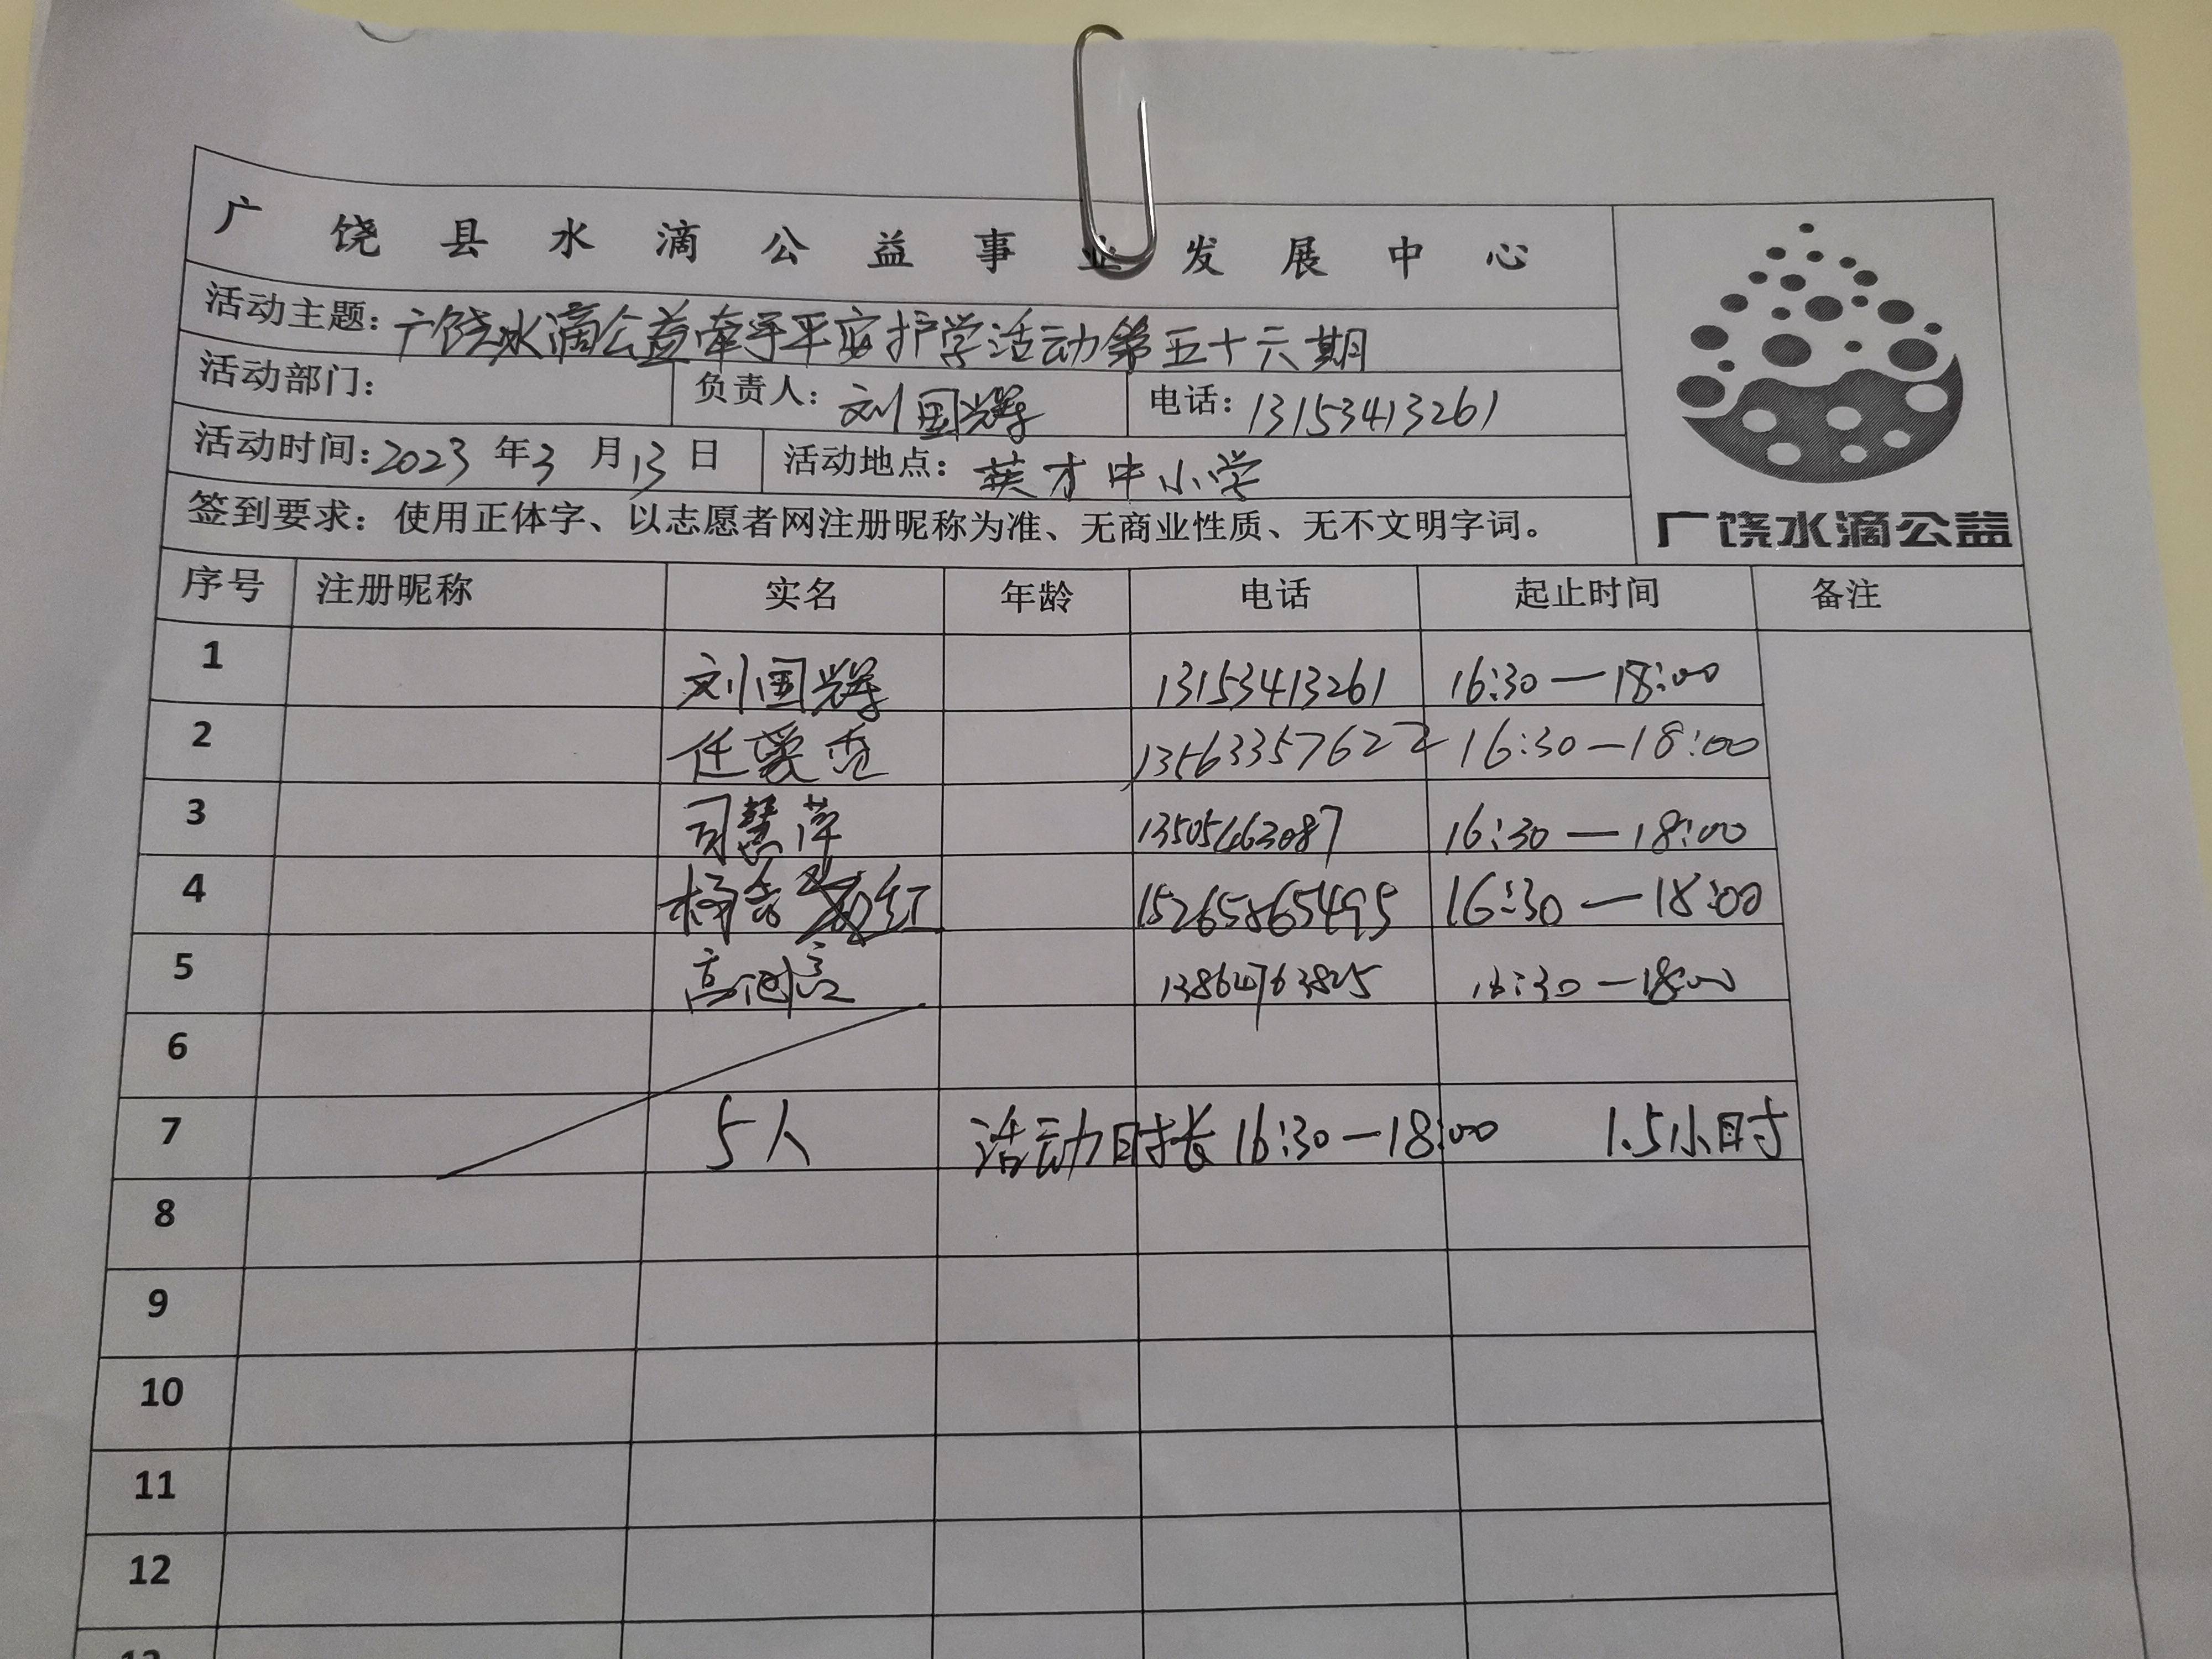 广饶县水滴公益事业发展中心
活动主题：广饶水滴公益牵手平安护学活动第五十六期
活动部门： 负责人：刘国辉 电话：13153413261
活动时间：2023年3月13日 活动地点：英才中小学
签到要求：使用正体字、以志愿者网注册昵称为准、无商业性质、无不文明字词。
广饶水滴公益
序号 注册昵称 实名 年龄 电话 起止时间 备注
1 刘国辉 13153413261 16:30—18:00
2 任爱 13563357622 16:30—18:00
3 司慧萍 13505463087 16:30—18:00
4 杨 红 15265865495 16:30—18:00
5 高 16:30—18:00
6
7 5人 活动时长16:30—18:00 1.5小时
8
9
10
11
12